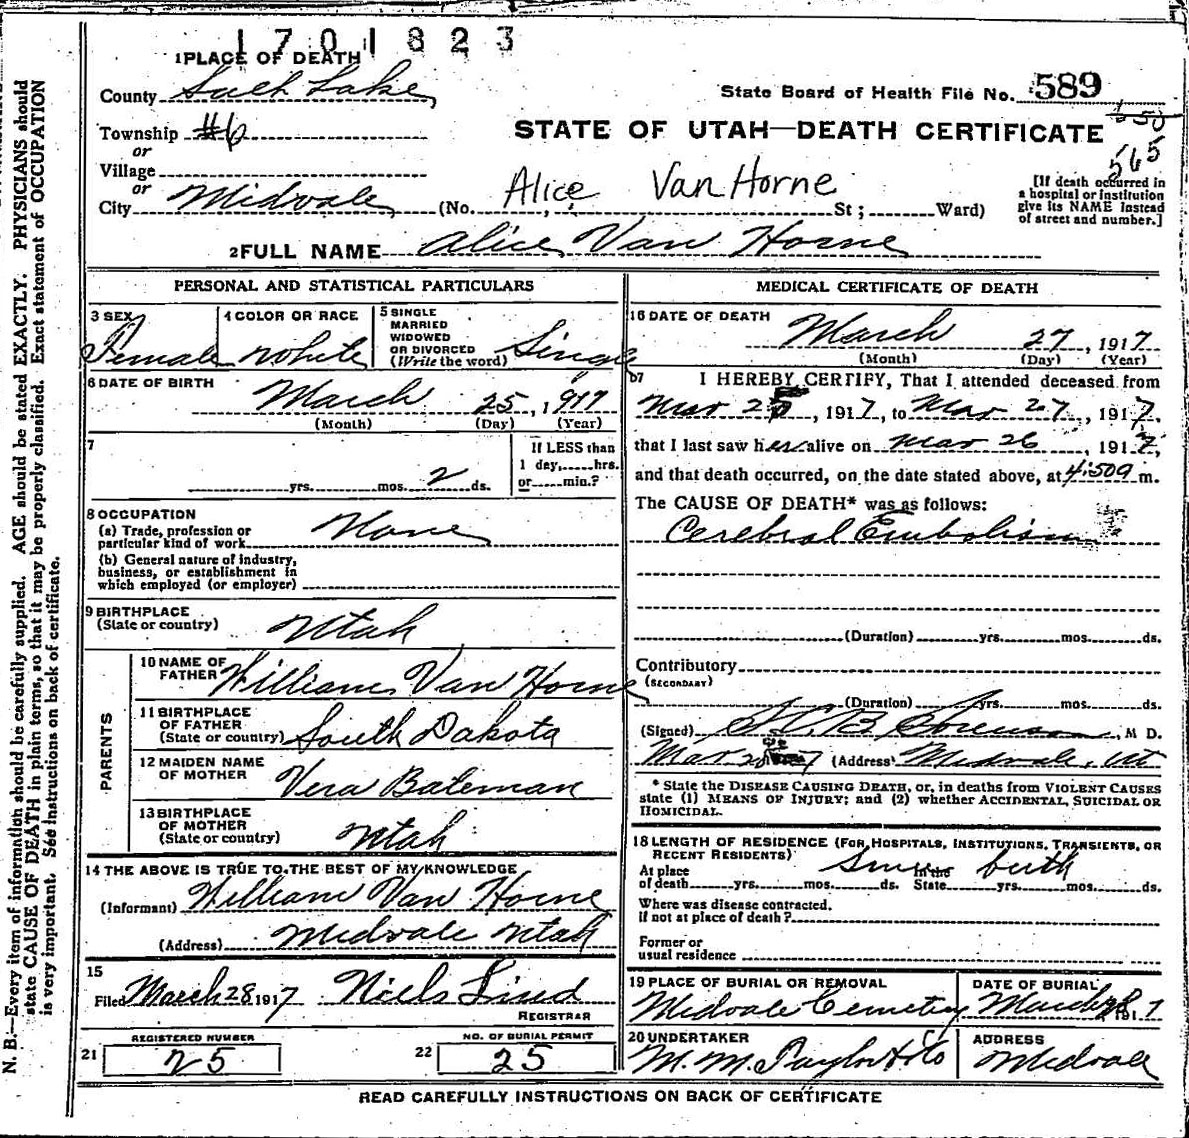 1701823
1 PLACE OF DEATH
County Salt Lake
State Board of Health File No. 589
Township #6
STATE OF UTAH—DEATH CERTIFICATE
or
565
Village
or
Alice Van Horne
City Midvale (No. St; Ward)
[If death occurred in
a hospital or institution
give its NAME instead
of street and number.]
2 FULL NAME Alice Van Horne
PERSONAL AND STATISTICAL PARTICULARS
3 SEX Female
4 COLOR OR RACE White
5 SINGLE
MARRIED
WIDOWED
OR DIVORCED
(Write the word) Single
6 DATE OF BIRTH
March 25, 1917
(Month) (Day) (Year)
7
yrs. mos. 2 ds.
If LESS than
1 day, hrs.
or min.?
8 OCCUPATION
(a) Trade, profession or
particular kind of work None
(b) General nature of industry,
business, or establishment in
which employed (or employer)
9 BIRTHPLACE
(State or country) Utah
PARENTS
10 NAME OF
FATHER William Van Horne
11 BIRTHPLACE
OF FATHER
(State or country) South Dakota
12 MAIDEN NAME
OF MOTHER Vera Bateman
13 BIRTHPLACE
OF MOTHER
(State or country) Utah
14 THE ABOVE IS TRUE TO THE BEST OF MY KNOWLEDGE
(Informant) William Van Horne
(Address) Midvale Utah
15
Filed March 28 1917 Niels Lind
REGISTRAR
REGISTERED NUMBER
21 25
NO. OF BURIAL PERMIT
22 25
MEDICAL CERTIFICATE OF DEATH
16 DATE OF DEATH
March 27, 1917
(Month) (Day) (Year)
17 I HEREBY CERTIFY, That I attended deceased from
Mar 25, 1917, to Mar 27, 1917,
that I last saw her alive on Mar 26, 1917,
and that death occurred, on the date stated above, at 4:50 m.
The CAUSE OF DEATH* was as follows:
Cerebral Embolism
(Duration) yrs. mos. ds.
Contributory
(SECONDARY)
(Duration) yrs. mos. ds.
(Signed) Sorenson, M D.
Mar 28 17 (Address) Midvale, Ut
* State the DISEASE CAUSING DEATH, or, in deaths from VIOLENT CAUSES
state (1) MEANS OF INJURY; and (2) whether ACCIDENTAL, SUICIDAL OR
HOMICIDAL.
18 LENGTH OF RESIDENCE (FOR HOSPITALS, INSTITUTIONS, TRANSIENTS, OR
RECENT RESIDENTS) Since birth
At place In the
of death yrs. mos. ds. State yrs. mos. ds.
Where was disease contracted.
if not at place of death?
Former or
usual residence
19 PLACE OF BURIAL OR REMOVAL
Midvale Cemetery
DATE OF BURIAL
March 28, 1917
20 UNDERTAKER
M. M. Taylor & Co
ADDRESS
Midvale
READ CAREFULLY INSTRUCTIONS ON BACK OF CERTIFICATE
N. B.—Every item of information should be carefully supplied. AGE should be stated EXACTLY. PHYSICIANS should
state CAUSE OF DEATH in plain terms, so that it may be properly classified. Exact statement of OCCUPATION
is very important. See instructions on back of certificate.